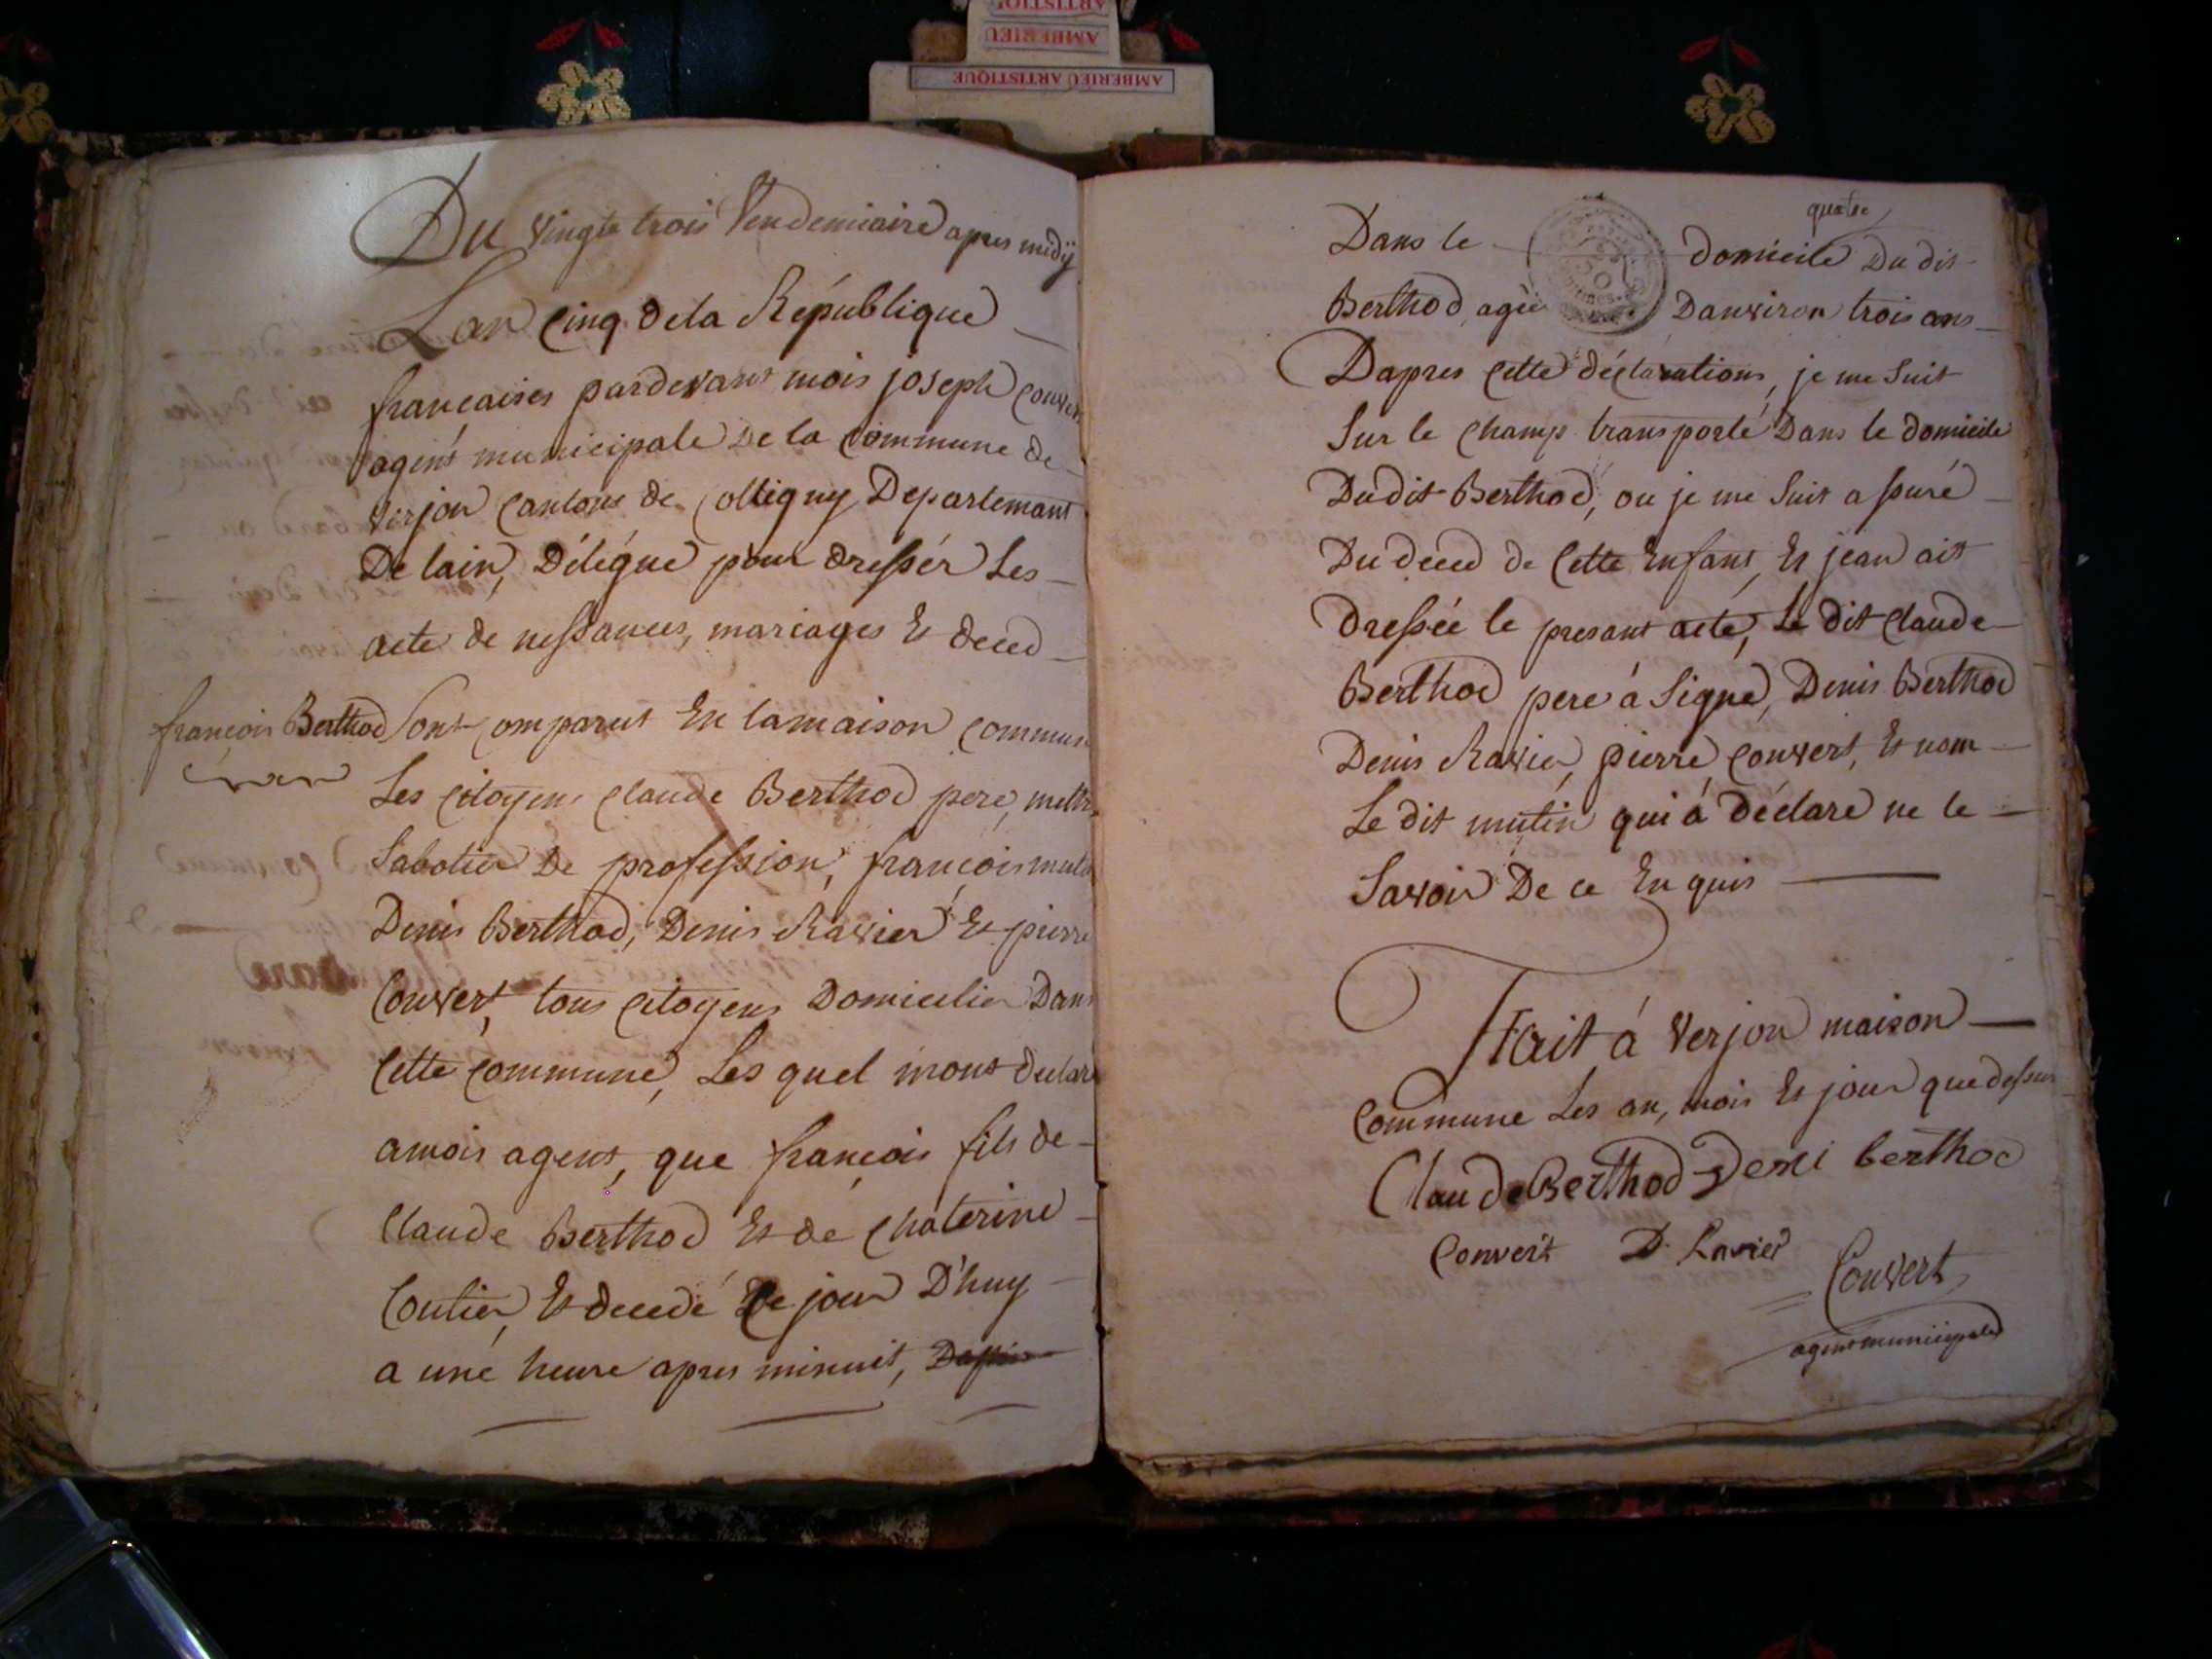 ARTISTIQUE
AMBERIEU
AMBERIEU ARTISTIQUE
Du vingte trois Vendemiaire apres midÿ
Lan Cinq de la République
françaises pardevant mois joseph Conver
agent municipale De la Commune de
Virjon Cantons de Colligny Departemant
De lain, Délégué pour dressér Les
acte de nessances, mariages Et deced
françois Berthod
Sont Comparut En lamaison Commune
Les Citoyens Claude Berthod pere, mettre
Sabotier De profession, françois mutin
Denis Berthod, Denis Ravier Et pierre
Convert, tous Citoyens Domicilier Dans
Cette Commune, Les quel mont declare
amois agent, que françois fils de
Claude Berthod Et de Chaterine
Coutier, Et decedé Ce jour D'huy
a une heure apres minuit,
quatre
Dans le domicile Du dit
Berthod, agée Danviron trois ans
Dapres Cette déclarations, je me Suit
Sur le Champ transporté Dans le domicile
Du dit Berthod, ou je me Suit assuré
Du deced de Cette Enfant, Et jean ait
Dressée le presant acte, Le dit Claude
Berthod pere á Signé, Denis Berthod
Denis Ravier, pierre Convert, Et nom
Le dit mutin qui á déclaré ne le
Savoir De ce Enquis
Fait á Verjon maison
Commune Les an, mois Et jour que dessus
Claude Berthod Deni berthod
Convert D. Ravier
Convert
agent municipale